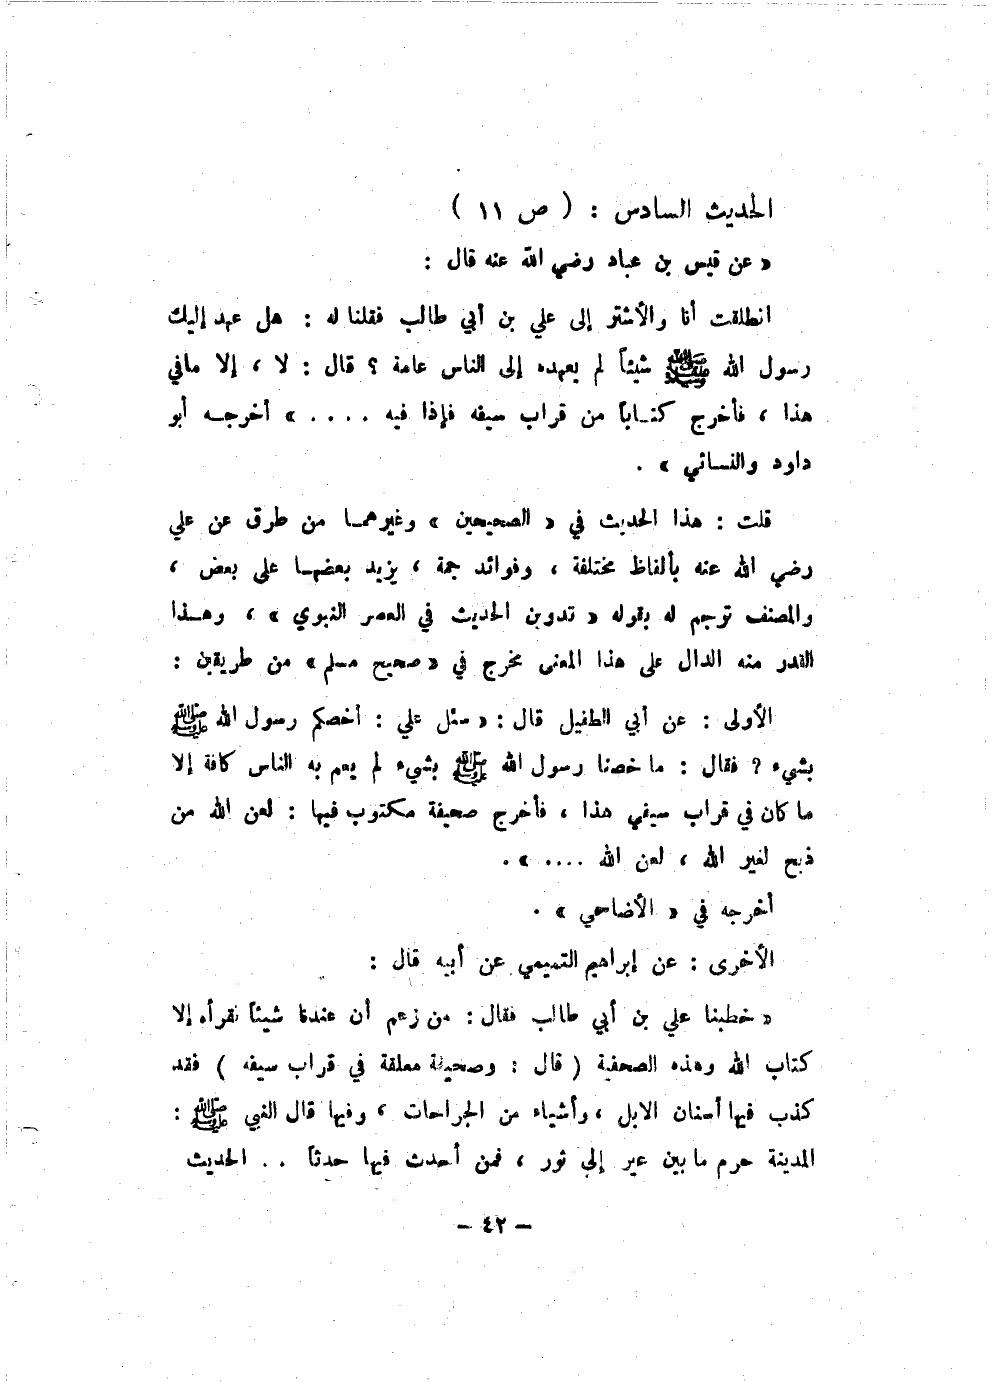 الحديث السادس : ( ص ١١ )
« عن قيس بن عباد رضي الله عنه قال :
انطلقت أنا والأشتر إلى علي بن أبي طالب فقلنا له : هل عهد إليك
رسول الله ﷺ شيئاً لم يعهده إلى الناس عامة ؟ قال : لا ، إلا مافي
هذا ، فأخرج كتـاباً من قراب سيفه فإذا فيه . . . . » أخرجـه أبو
داود والنسائي » .
قلت : هذا الحديث في « الصحيحين » وغيرهمـا من طرق عن علي
رضي الله عنه بألفاظ مختلفة ، وفوائد جمة ، يزيد بعضهـا على بعض ،
والمصنف ترجم له بقوله « تدوين الحديث في العصر النبوي » ، وهـذا
القدر منه الدال على هذا المعنى مخرج في « صحيح مسلم » من طريقين :
الأولى : عن أبي الطفيل قال : « سئل علي : أخصكم رسول الله ﷺ
بشيء ? فقال : ما خصنا رسول الله ﷺ بشيء لم يعم به الناس كافة إلا
ما كان في قراب سيفي هذا ، فأخرج صحيفة مكتوب فيها : لعن الله من
ذبح لغير الله ، لعن الله .... » .
أخرجه في « الأضاحي » .
الأخرى : عن إبراهيم التميمي عن أبيه قال :
« خطبنا علي بن أبي طالب فقال : من زعم أن عندنا شيئاً نقرأه إلا
كتاب الله وهذه الصحفية ( قال : وصحيفة معلقة في قراب سيفه ) فقد
كذب فيها أسنان الابل ، وأشياء من الجراحات ، وفيها قال النبي ﷺ :
المدينة حرم ما بين عير إلى ثور ، فمن أحدث فيها حدثاً . . الحديث
– ٤٢ –